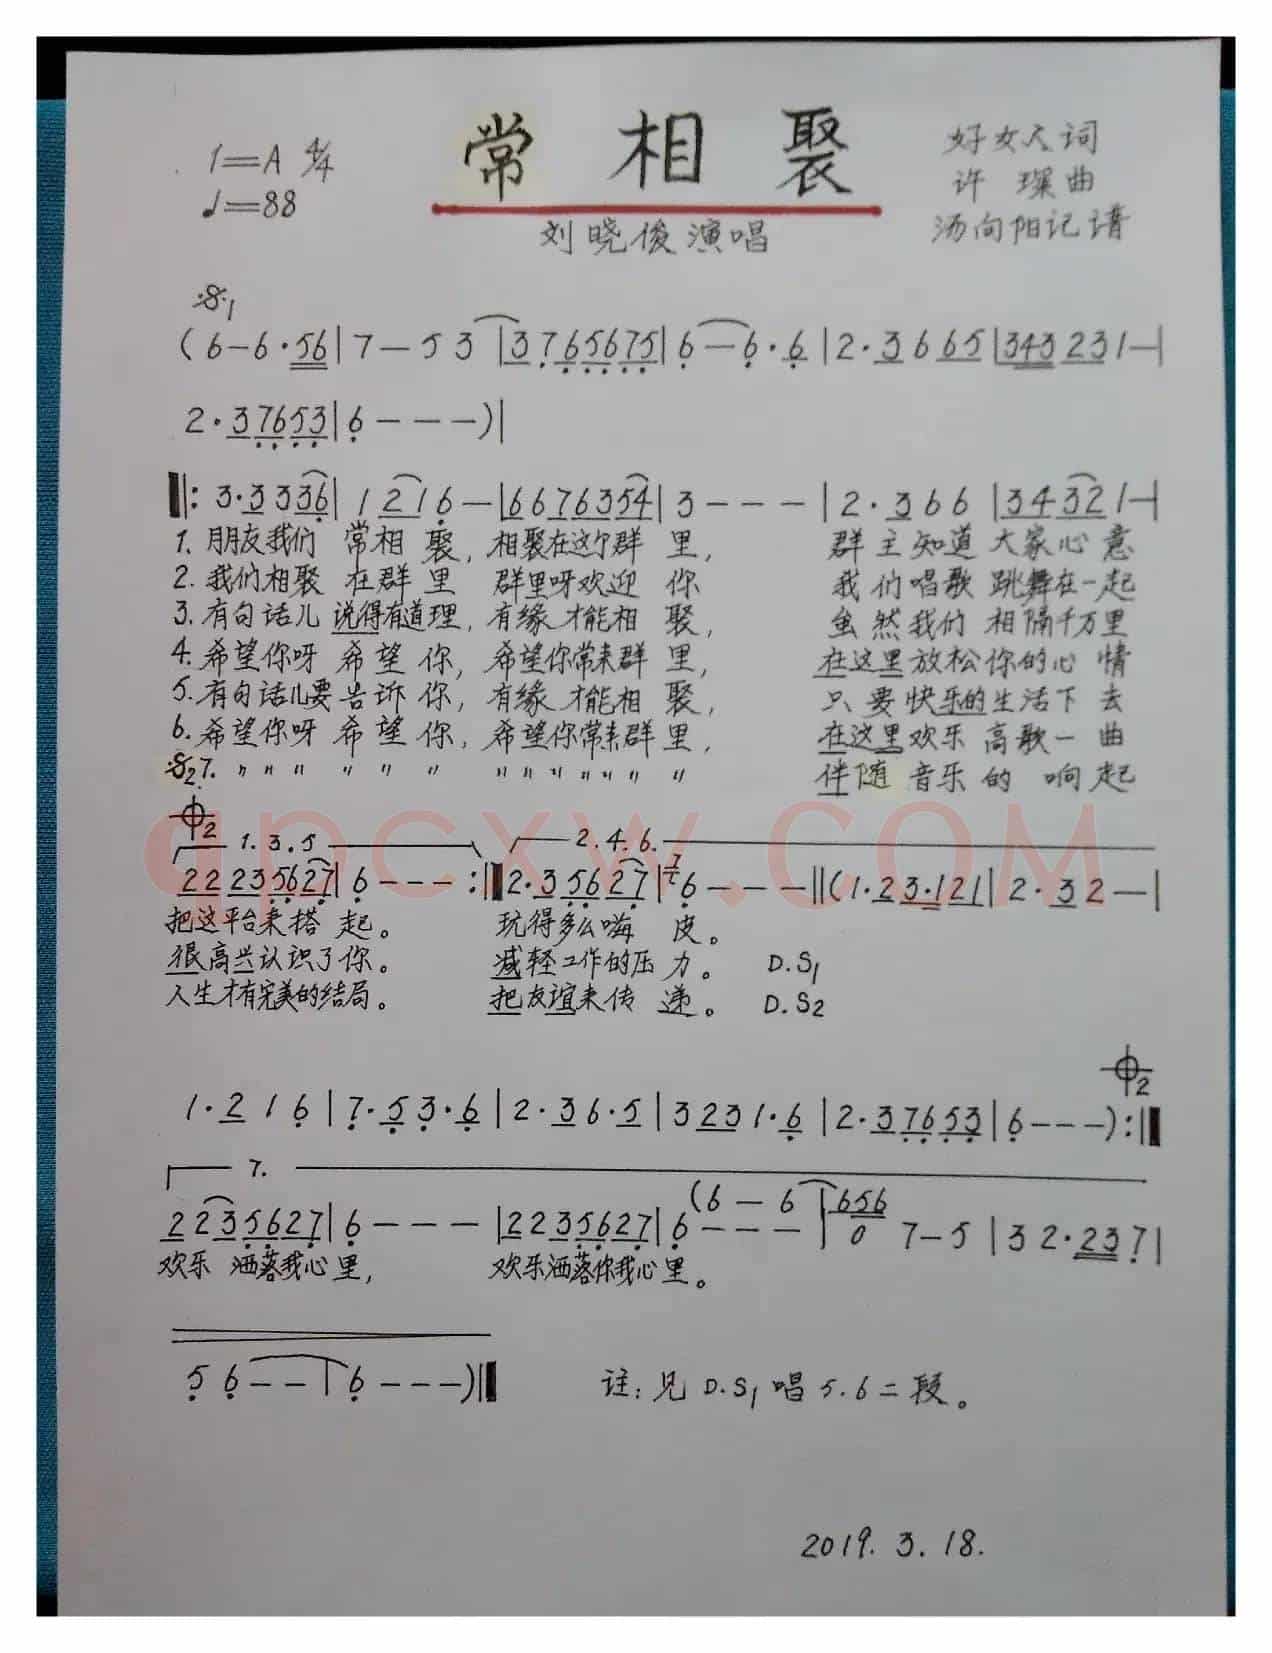 1=A 4/4
♩=88
常 相 聚
刘晓俊演唱
好女人词
许 琛曲
汤向阳记谱
(6-6·56|7-5 3|3 765675|6-6·6|2·3 6 65|343 23 1-|
2·37653|6---)|
‖:3·3 3 36|1 2 1 6-|6 6 76 3 54|3---|2·3 6 6|34 32 1-|
1. 朋友我们 常相 聚，相聚在这个群 里， 群主知道 大家心 意
2. 我们相聚 在群 里 群里呀欢迎 你 我们唱歌 跳舞在一起
3. 有句话儿 说得有道理，有缘才能相 聚， 虽然我们 相隔千万里
4. 希望你呀 希望 你，希望你常来群 里， 在这里放松你的心 情
5. 有句话儿要 告诉 你，有缘才能相 聚， 只要快乐的生活下 去
6. 希望你呀 希望 你，希望你常来群里， 在这里欢乐 高歌一 曲
7. 〃 〃 〃 〃 〃 〃 〃 〃 〃 〃 〃 〃 〃 伴随 音乐的 响起
1. 3. 5 2. 4. 6.
22 235627|6---:‖2·35627|6---‖(1·23·121|2·32-|
把这平台来搭 起。 玩得多么嗨 皮。
很高兴认识了你。 减轻工作的压 力。 D.S1
人生才有完美的结局。 把友谊来传 递。 D.S2
1·2 1 6|7·5 3·6|2·36·5|3 23 1·6|2·37653|6---):‖
7.
2 2 3 5 6 2 7|6---|2 2 3 5 6 2 7|6---|0 7-5|3 2·23 7|
(6-6|656
欢乐 洒落我心里， 欢乐洒落你我心里。
5 6--|6---)‖
注：见 D.S1 唱 5.6二段。
2019. 3. 18.
qpcxw.COM